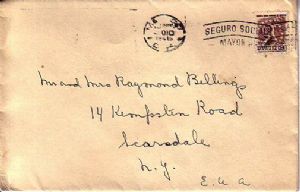 SEGURO SOCIAL
MAYOR
Mr and Mrs Raymond Billings
14 Kempston Road
Scarsdale
N.Y.
E.U.A